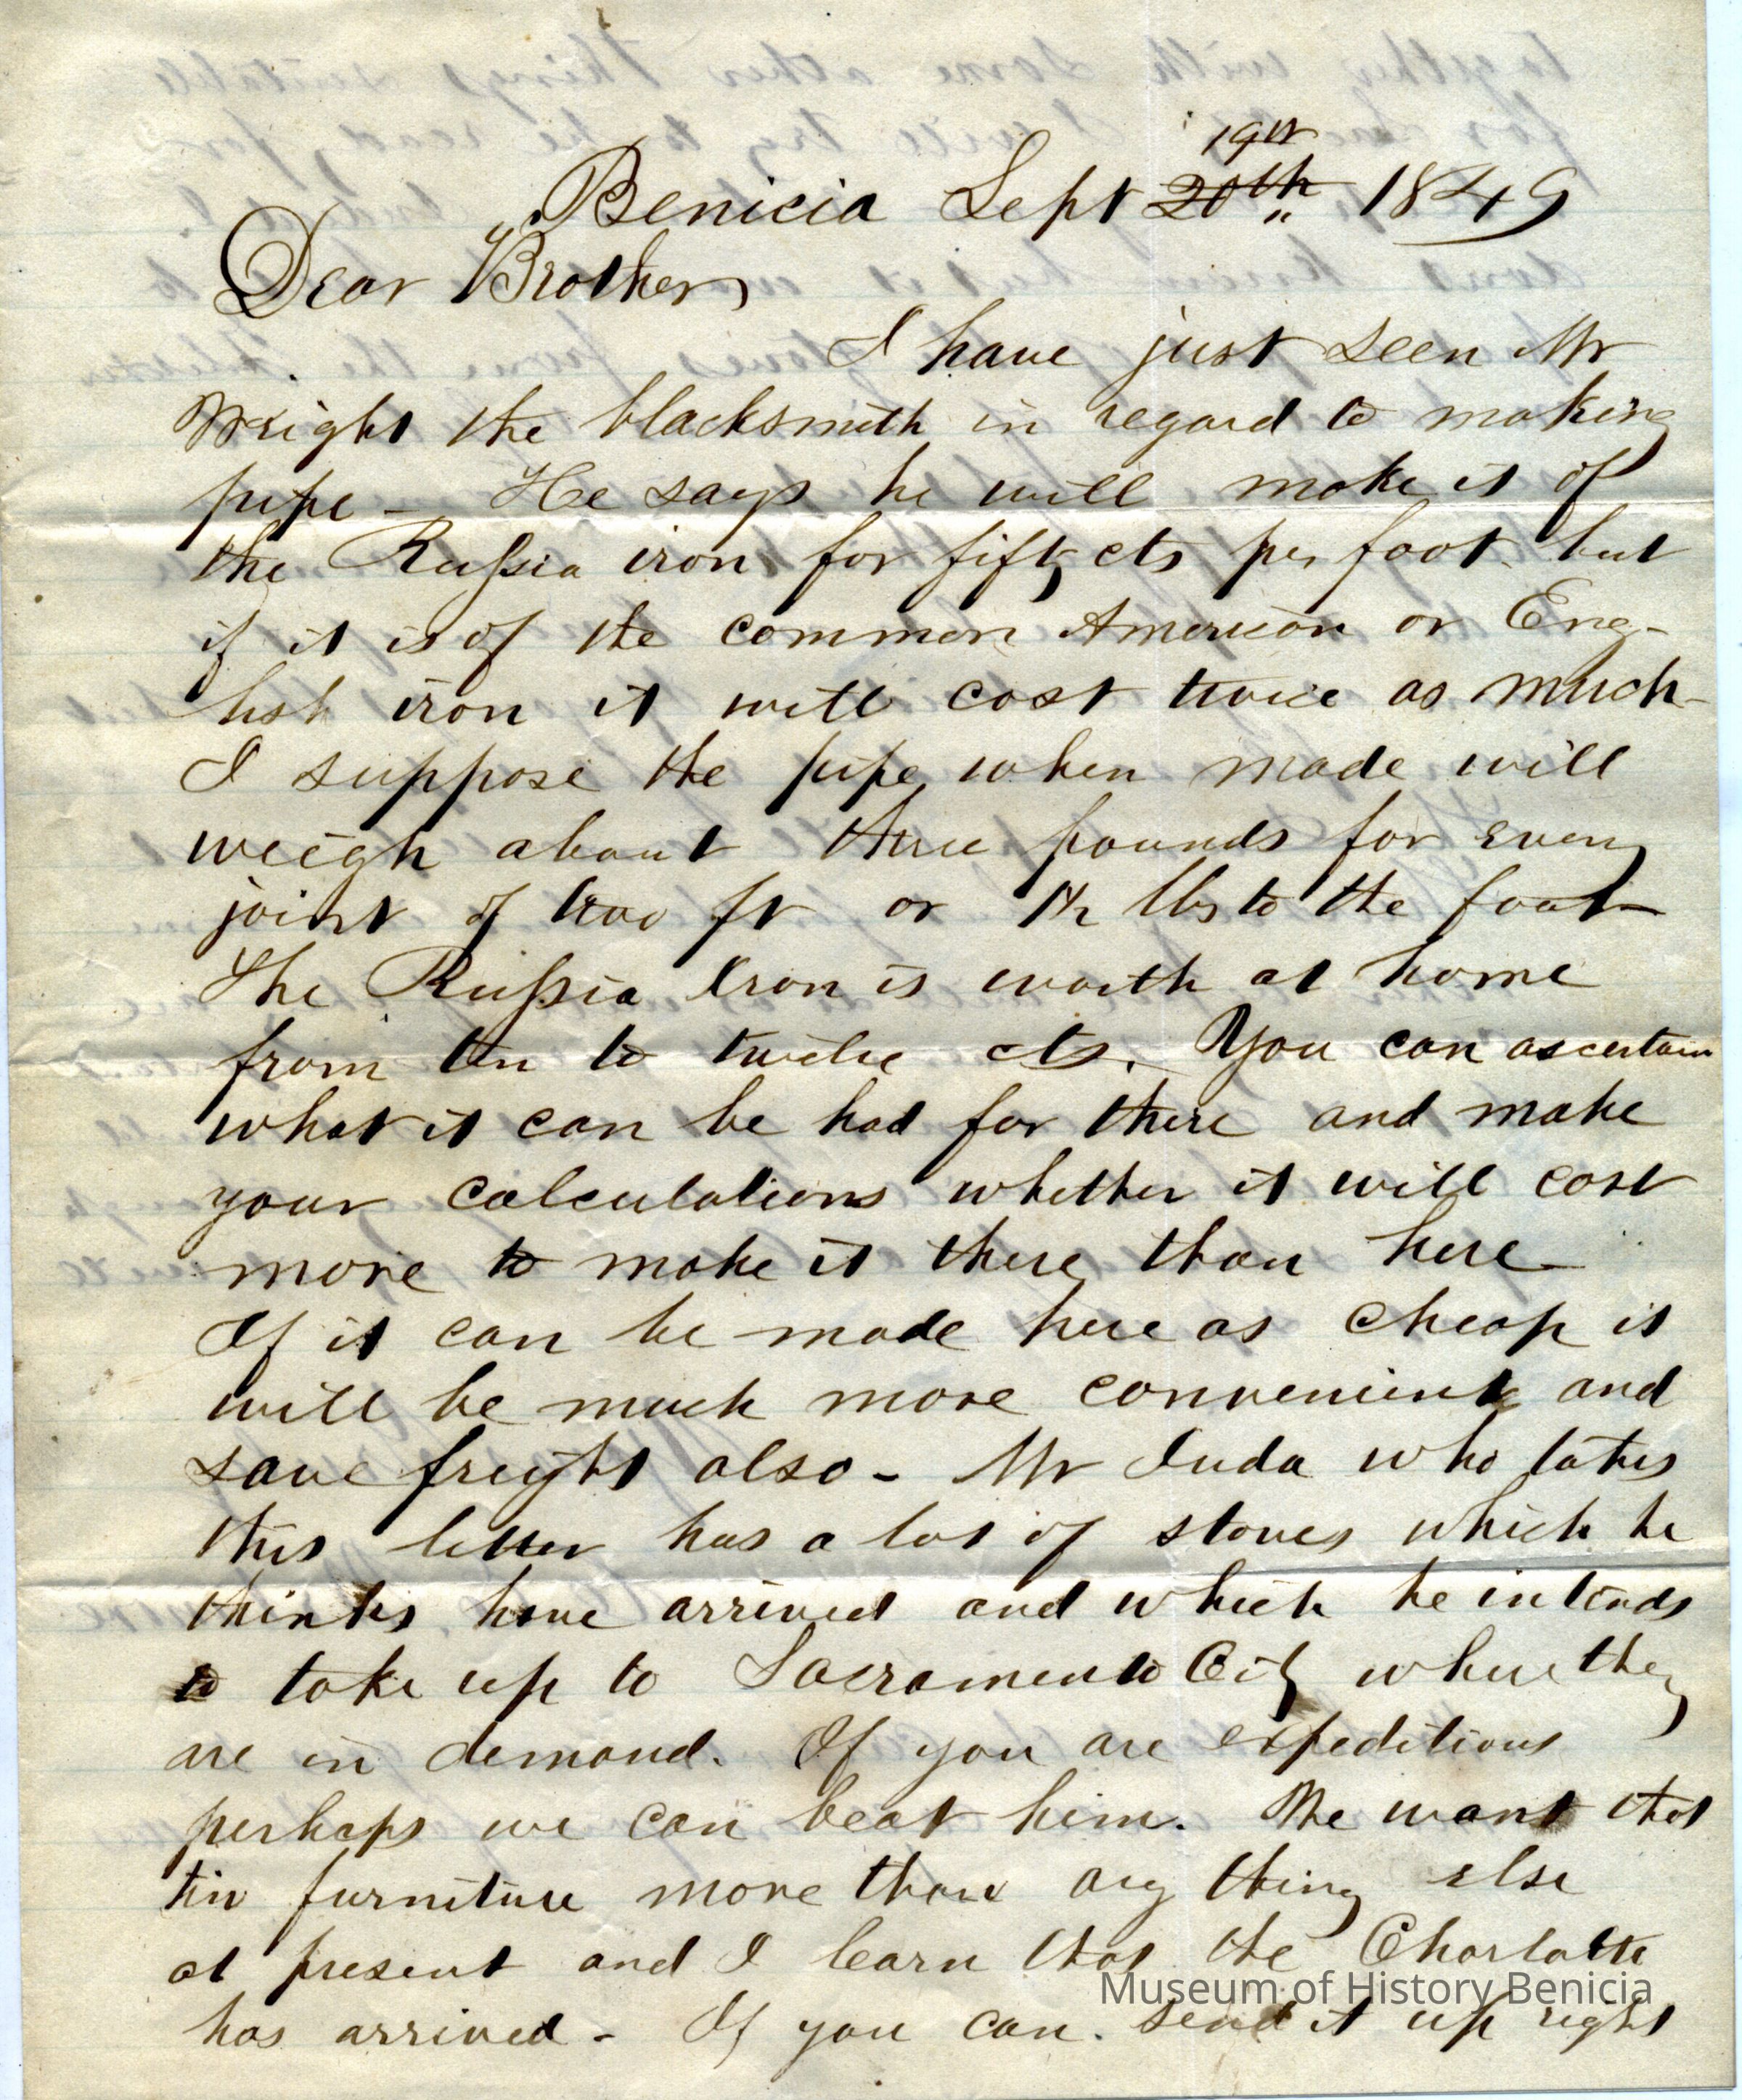 19th
Benicia Sept 20th 1849
Dear Brother
I have just seen Mr
Wright the blacksmith in regard to making
pipe - He says he will make it of
the Russia iron for fifty cts per foot but
if it is of the common American or Eng-
lish iron it will cost twice as much -
I suppose the pipe when made will
weigh about three pounds for every
joint of two ft or 1½ lbs to the foot -
The Russia Iron is worth at home
from ten to twelve cts. You can ascertain
what it can be had for there and make
your calculations whether it will cost
more to make it there than here -
If it can be made here as cheap it
will be much more convenient and
save freight also - Mr Juda who takes
this letter has a lot of stoves which he
thinks have arrived and which he intends
to take up to Sacramento City where they
are in demand. If you are expeditious
perhaps we can beat him. We want that
tin furniture more than any thing else
at present and I learn that the Charlotte
has arrived - If you can send it up right
Museum of History Benicia